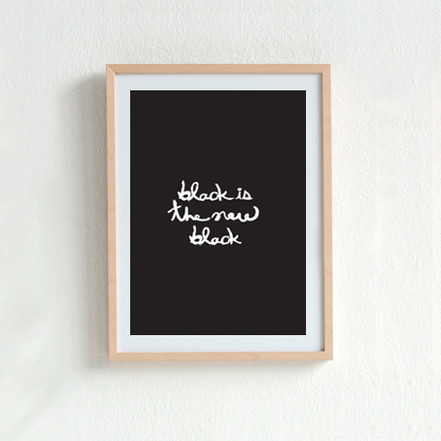 black is
the new
black